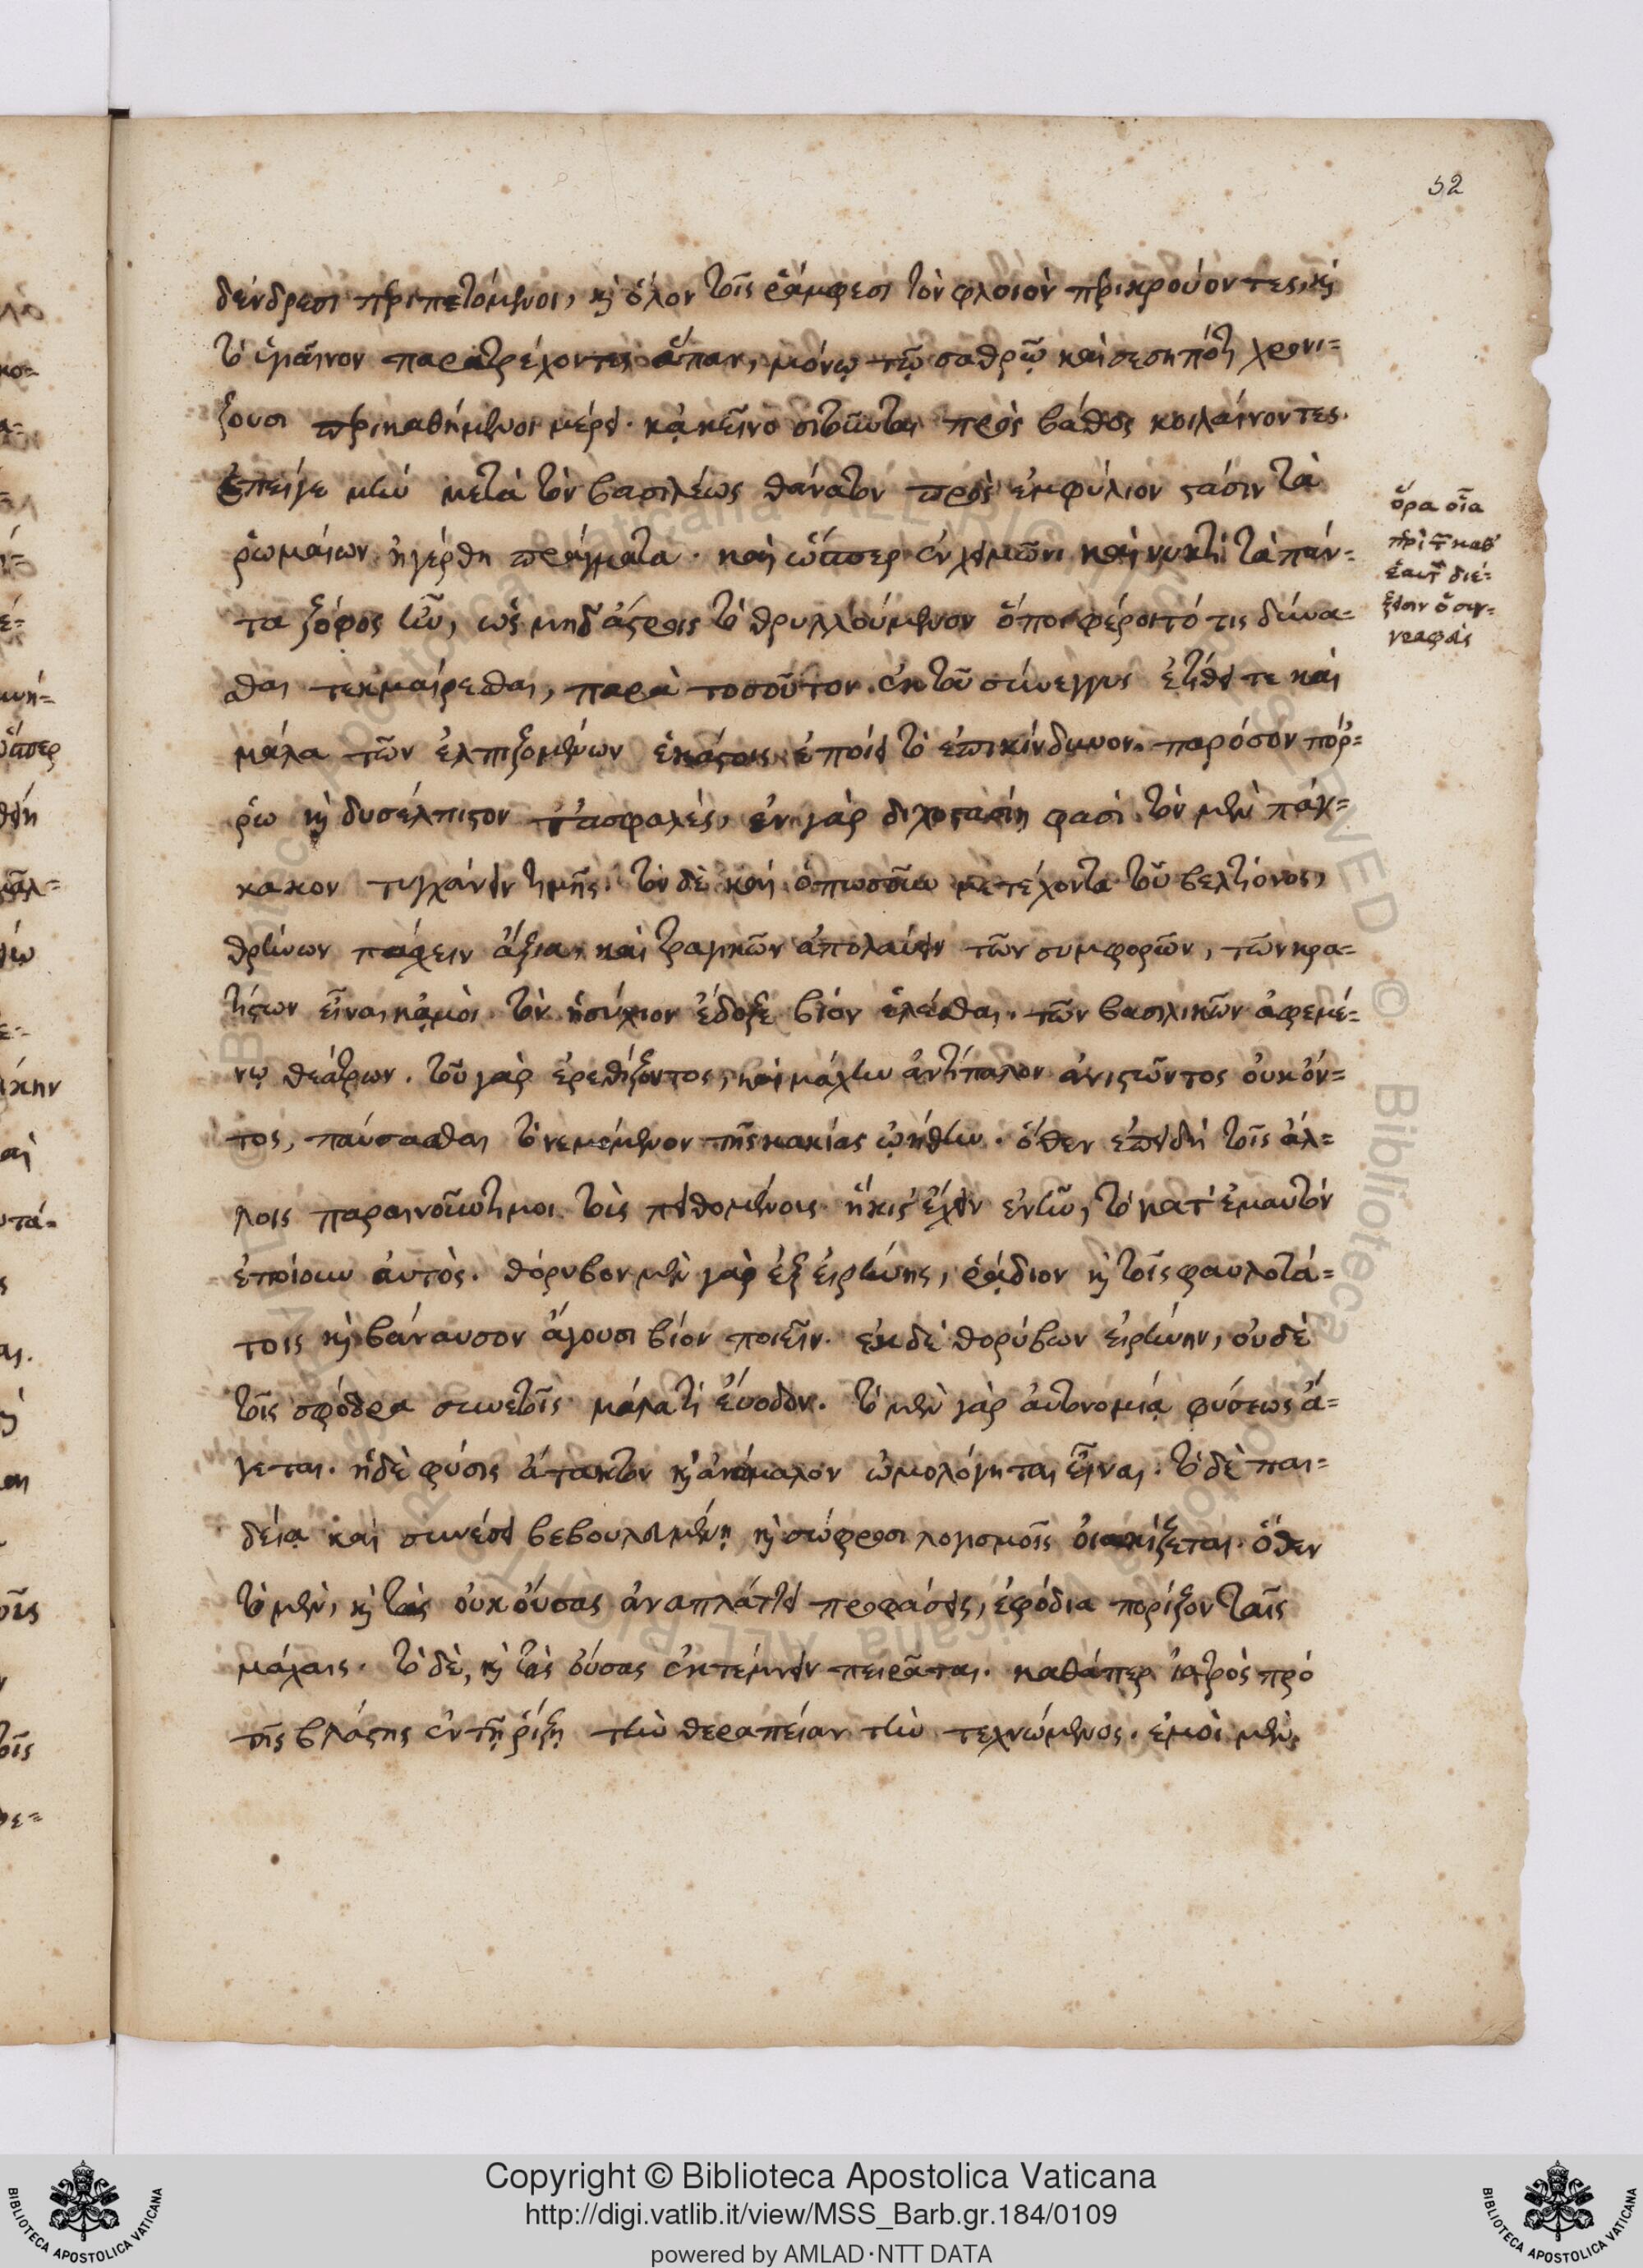 52
δένδρεσι περιπετόμενοι, κὴ ὅλον τοῖς ῥάμφεσι τὸν φλοιὸν περικρούοντες, κὴ
τὸ ὑγιαῖνον παρατρέχοντες ἅπαν, μόνῳ τῷ σαθρῷ καὶ σεσηπότι χρονί=
ζουσι περικαθήμενοι μέρει. κἀκεῖνο σιτοῦνται πρὸς βάθος κοιλαίνοντες.
Ἐπεί γε μὴν μετὰ τὸν βασιλέως θάνατον πρὸς ἐμφύλιον στάσιν τὰ
ῥωμαίων ἠγέρθη πράγματα. καὶ ὥσπερ ἐν χειμῶνι καὶ νυκτὶ τὰ πάν=
τα ζόφος ἦν, ὡς μηδ' ἄστροις τὸ θρυλλούμενον ὅποι φέροιτό τις δύνα=
σθαι τεκμαίρεσθαι, παρὰ τοσοῦτον ἐκ τοῦ σύνεγγυς ἐτίθει τε καὶ
μάλα τῶν ἐλπιζομένων ἑκάστοις ἐποίει τὸ ἐπικίνδυνον. παρόσον πόρ=
ρω κὴ δυσέλπιστον τ' ἀσφαλὲς, ἐν γὰρ διχοστασίῃ φασὶ τὸν μὲν πάγ=
κακον τυγχάνειν τιμῆς. τὸν δὲ καὶ ὁπωσοῦν μετέχοντα τοῦ βελτίονος,
θρήνων πάσχειν ἄξια, καὶ τραγικῶν ἀπολαύειν τῶν συμφορῶν, τῶν κρα=
τίστων εἶναι κἀμοὶ τὸν ἡσύχιον ἔδοξε βίον ἑλέσθαι. τῶν βασιλικῶν ἀφεμέ=
νῳ θεάτρων. τοῦ γὰρ ἐρεθίζοντος, καὶ μάχην ἀντίπαλον ἀνιστῶντος οὐκ ὄν=
τος, παύσασθαι τὸ νεμόμενον τῆς κακίας ᾠήθην. ὅθεν ἐπειδὴ τοῖς ἄλ=
λοις παραινοῦντί μοι τοὺς πειθομένους ἥκιστ' ἔχειν ἐνῆν, τὸ κατ' ἐμαυτὸν
ἐποίουν αὐτὸς. θόρυβον μὲν γὰρ ἐξ εἰρήνης, ῥᾴδιον κὴ τοῖς φαυλοτά=
τοις κὴ βάναυσον ἄγουσι βίον ποιεῖν. ἐκ δὲ θορύβων εἰρήνην, οὐδὲ
τοῖς σφόδρα συνετοῖς μάλα τι εὔοδον. τὸ μὲν γὰρ αὐτονομίᾳ φύσεως ἄ=
γεται. ἡ δὲ φύσις ἄτακτον κὴ ἀνώμαλον ὡμολόγηται εἶναι. τὸ δὲ παι=
δείᾳ καὶ συνέσει βεβουλευμένῃ κὴ σώφροσι λογισμοῖς οἰακίζεται. ὅθεν
τὸ μὲν, κὴ τὰς οὐκ οὔσας ἀναπλάττει προφάσεις, ἐφόδια πορίζον ταῖς
μάχαις. τὸ δὲ, κὴ τὰς οὔσας ἐκτέμνειν πειρᾶται. καθάπερ ἰατρὸς πρὸ
τῆς βλάστης ἐν τῇ ῥίζῃ τὴν θεραπείαν τὴν τεχνώμενος. ἐμοὶ μὲν
ὅρα οἷα
περὶ τῶν καθ'
ἑαυτὸν διέ=
ξεισιν ὁ συγ=
γραφεύς
Copyright © Biblioteca Apostolica Vaticana
http://digi.vatlib.it/view/MSS_Barb.gr.184/0109
powered by AMLAD·NTT DATA